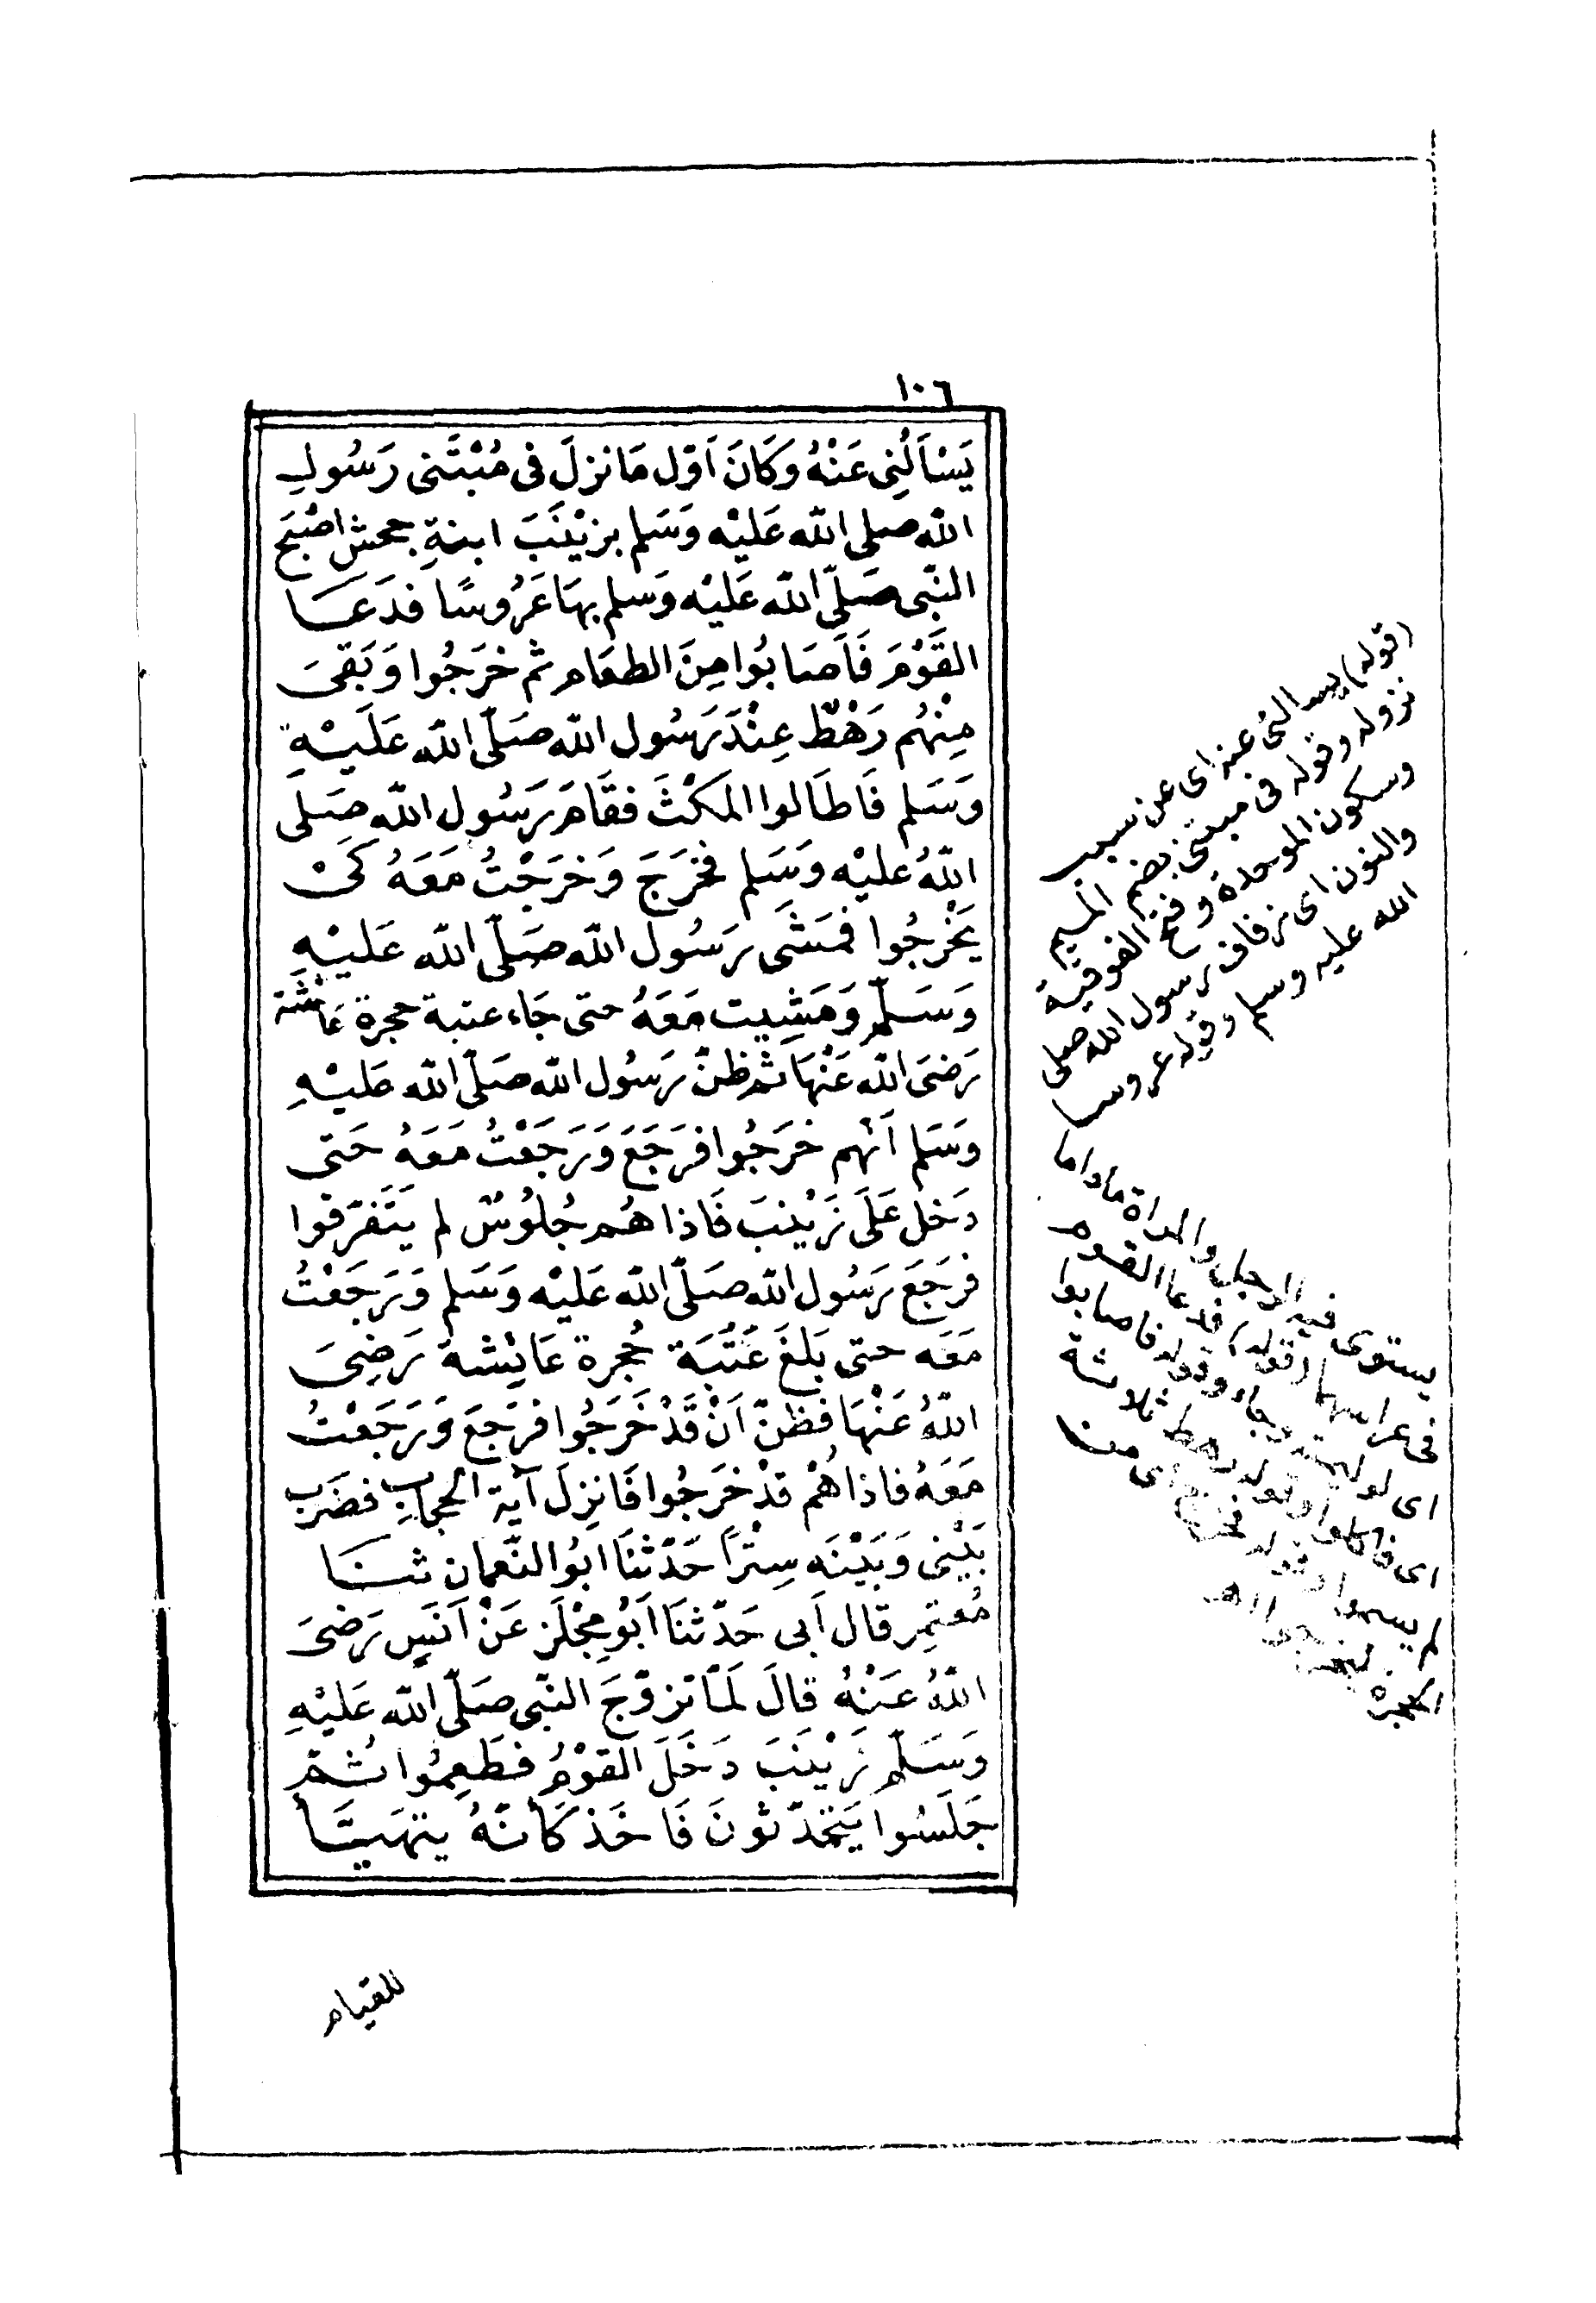 ١٠٦
يَسْأَلُنِى عَنْهُ وَكَانَ اَوّل مَا نزلَ فى مُبْتَنى رَسُولِ
الله صلى الله عَليْه وَسَلم بزيْنَبَ ابنةِ جحش اصْبَحَ
النّبى صَلّى الله عَليْه وَسلم بهَا عَرُوسًا فدَعَا
القَوْمَ فَاَصَابُوا مِنَ الطعَام ثم خرَجُوا وَبَقىَ
مِنْهُم رَهْطٌ عِنْدَ رَسُول الله صَلّى الله عَلَيْهِ
وَسَلم فَاطَالوا المكْثَ فقَامَ رَسُول الله صَلى
اللهُ عليْه وَسَلم فخرَجَ وَخرَجْتُ مَعَهُ كَىْ
يَخْرجُوا فمَشَى رَسُول الله صَلّى الله عَليْهِ
وَسَلّم وَمَشِيت مَعَهُ حتى جَاء عتبة حجرة عَائشَة
رَضىَ الله عَنْهَا ثم ظنّ رَسُول الله صَلّى الله عَليْهِ
وَسَلم اَنهم خرَجُوا فرَجَعَ وَرَجَعْتُ مَعَهُ حَتى
دَخل عَلَى زَيْنبَ فَاذا هُم جُلُوسٌ لم يَتَفرّقوا
فرَجَعَ رَسُول الله صَلّى الله عَليْه وَسَلم وَرَجَعْتُ
مَعَه حتى بَلغَ عَتَبَة حُجرة عَائِشة رَضِىَ
اللهُ عَنْهَا فظنّ اَنْ قَدْ خَرَجُوا فرَجَعَ وَرَجَعْتُ
مَعَهُ فاذا هُمْ قدْ خرَجُوا فَانزلَ آية الحجاب فضَرَب
بَيْنِى وَبَيْنَه سِتْرًا حَدّثنَا ابُو النّعمان ثنَا
مُعتمِر قال اَبى حَدّثنَا اَبُو مِجْلَز عَنْ اَنَسٍ رَضىَ
اللهُ عَنْهُ قالَ لَمّا تزوّجَ النّبى صَلّى الله عَليْهِ
وَسَلّم زَيْنَبَ دَخَلَ القوْمُ فطَعِمُوا ثمّ
جَلَسُوا يَتحَدّثونَ فَاخَذ كَأنّهُ يتهَيَّأ
(قوله) يسالنى عنه اى عن سبب
نزوله وقوله فى مبتنى بضم الميم
وسكون الموحدة وفتح الفوقية
والنون اى زفاف رسول الله صلى
الله عليه وسلم وقوله عروسا
يستوى فيه الرجل والمرأة ماداما
فى عراسهما (قوله) فدعا القوم
اى لوليمته وقوله فاصابوا
اى فاكلوا وقوله رهط ثلاثة
لم يسموا وقوله فخرج اى من
الحجرة ليخرجوا اهـ
للقيام